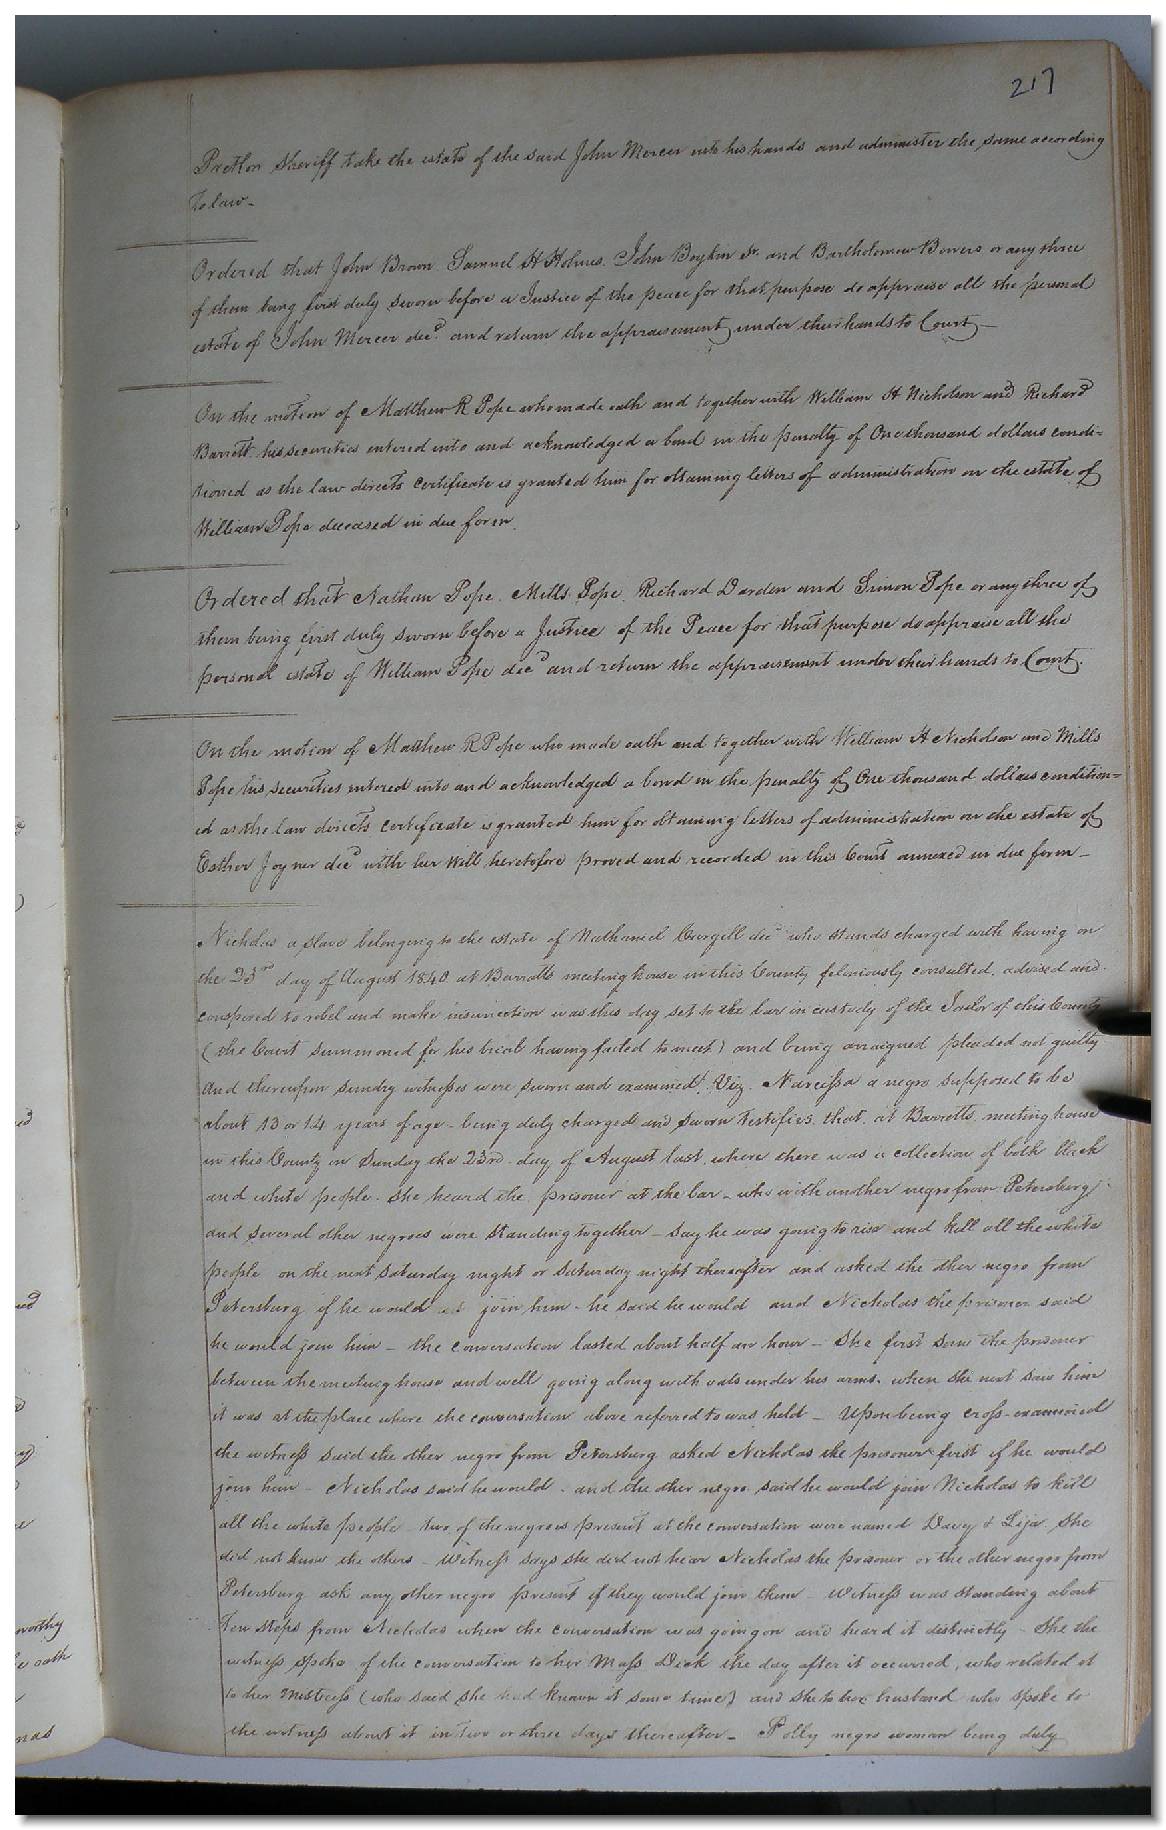 217
Pretlow Sheriff take the estate of the said John Mercer into his hands and administer the same according
to law -
Ordered that John Brown Samuel H Holmes. John Boykin Sr. and Bartholomew Bowers or any three
of them being first duly sworn before a Justice of the peace for that purpose do appraise all the personal
estate of John Mercer decd. and return the appraisement under their hands to Court -
On the motion of Matthew R Pope who made oath and together with William H Nicholson and Richard
Barrett his securities entered into and acknowledged a bond in the penalty of One thousand dollars condi=
tioned as the law directs certificate is granted him for obtaining letters of administration on the estate of
William Pope deceased in due form.
Ordered that Nathan Pope. Mills Pope. Richard Darden and Simon Pope or any three of
them being first duly sworn before a Justice of the Peace for that purpose do appraise all the
personal estate of William Pope decd and return the appraisement under their hands to Court.
On the motion of Matthew R Pope who made oath and together with William H Nicholson and Mills
Pope his securities entered into and acknowledged a bond in the penalty of One thousand dollars condition=
ed as the law directs certificate is granted him for obtaining letters of administration on the estate of
Esther Joyner decd with her Will heretofore proved and recorded in this Court annexed in due form -
Nicholas a slave belonging to the estate of Nathaniel Cargill decd who stands charged with having on
the 23rd day of August 1840 at Barretts meeting house in this County feloniously consulted, advised and
conspired to rebel and make insurrection was this day set to the bar in custody of the Jailor of this County
(the Court summoned for his trial having failed to meet) and being arraigned pleaded not guilty
and thereupon sundry witnesses were sworn and examined, Viz. Narcissa a negro supposed to be
about 13 or 14 years of age - being duly charged and sworn testifies, that, at Barretts meeting house
in this County on Sunday the 23rd day of August last, where there was a collection of both black
and white people - she heard the prisoner at the bar - who with another negro from Petersburg
and several other negroes were standing together - say he was going to rise and kill all the white
people on the next Saturday night or Saturday night thereafter and asked the other negro from
Petersburg if he would join him - he said he would and Nicholas the prisoner said
he would join him - the conversation lasted about half an hour - She first saw the prisoner
between the meeting house and well going along with oats under his arms. when she next saw him
it was at the place where the conversation above referred to was held - Upon being cross-examined
the witness said the other negro from Petersburg asked Nicholas the prisoner first if he would
join him - Nicholas said he would - and the other negro said he would join Nicholas to kill
all the white people - two of the negroes present at the conversation were named Davy & Lija. She
did not know the others - Witness says she did not hear Nicholas the prisoner or the other negro from
Petersburg ask any other negro present if they would join them - Witness was standing about
ten steps from Nicholas when the conversation was going on and heard it distinctly - She the
witness spoke of the conversation to her Mass Dick the day after it occurred, who related it
to her Mistress (who said she had known it some time) and she to her husband who spoke to
the witness about it in two or three days thereafter - Polly negro woman being duly